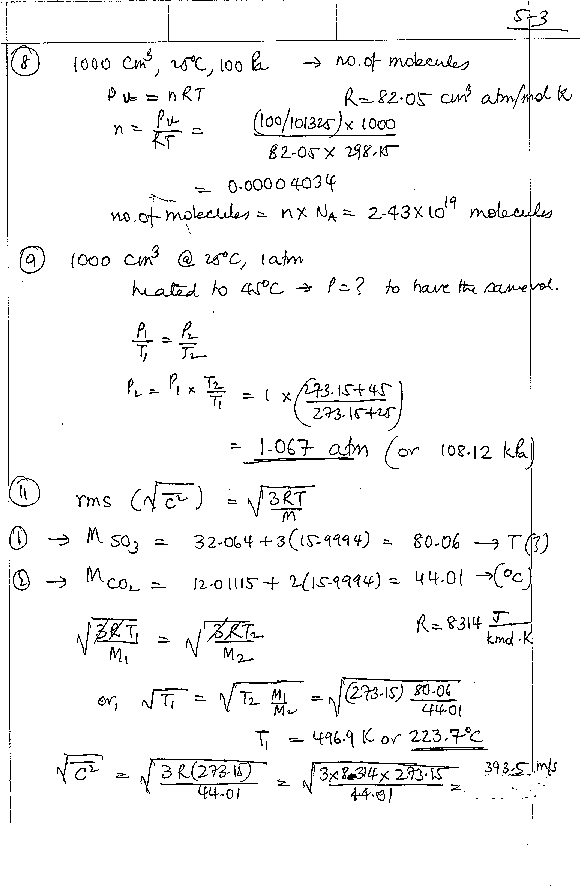 5-3
⑧ 1000 cm³, 25°C, 100 Pa → no. of molecules
Pv = nRT R = 82.05 cm³ atm/mol K
n = Pv/RT = (100/101325) × 1000 / 82.05 × 298.15
= 0.00004034
no. of molecules = n × N_A = 2.43 × 10¹⁹ molecules
⑨ 1000 cm³ @ 25°C, 1 atm
heated to 45°C → P = ? to have the same vol.
P₁/T₁ = P₂/T₂
P₂ = P₁ × T₂/T₁ = 1 × (273.15+45 / 273.15+25)
= 1.067 atm (or 108.12 kPa)
⑪ rms (√C²) = √(3RT/M)
① → M SO₃ = 32.064 + 3(15.9994) = 80.06 → T(?)
② → M CO₂ = 12.01115 + 2(15.9994) = 44.01 → (0°C)
√(3RT₁/M₁) = √(3RT₂/M₂) R = 8314 J/kmol·K
or, √T₁ = √(T₂ M₁/M₂) = √((273.15) 80.06/44.01)
T₁ = 496.9 K or 223.7°C
√C² = √(3R(273.15)/44.01) = √(3×8314×273.15/44.01) = 393.5 m/s